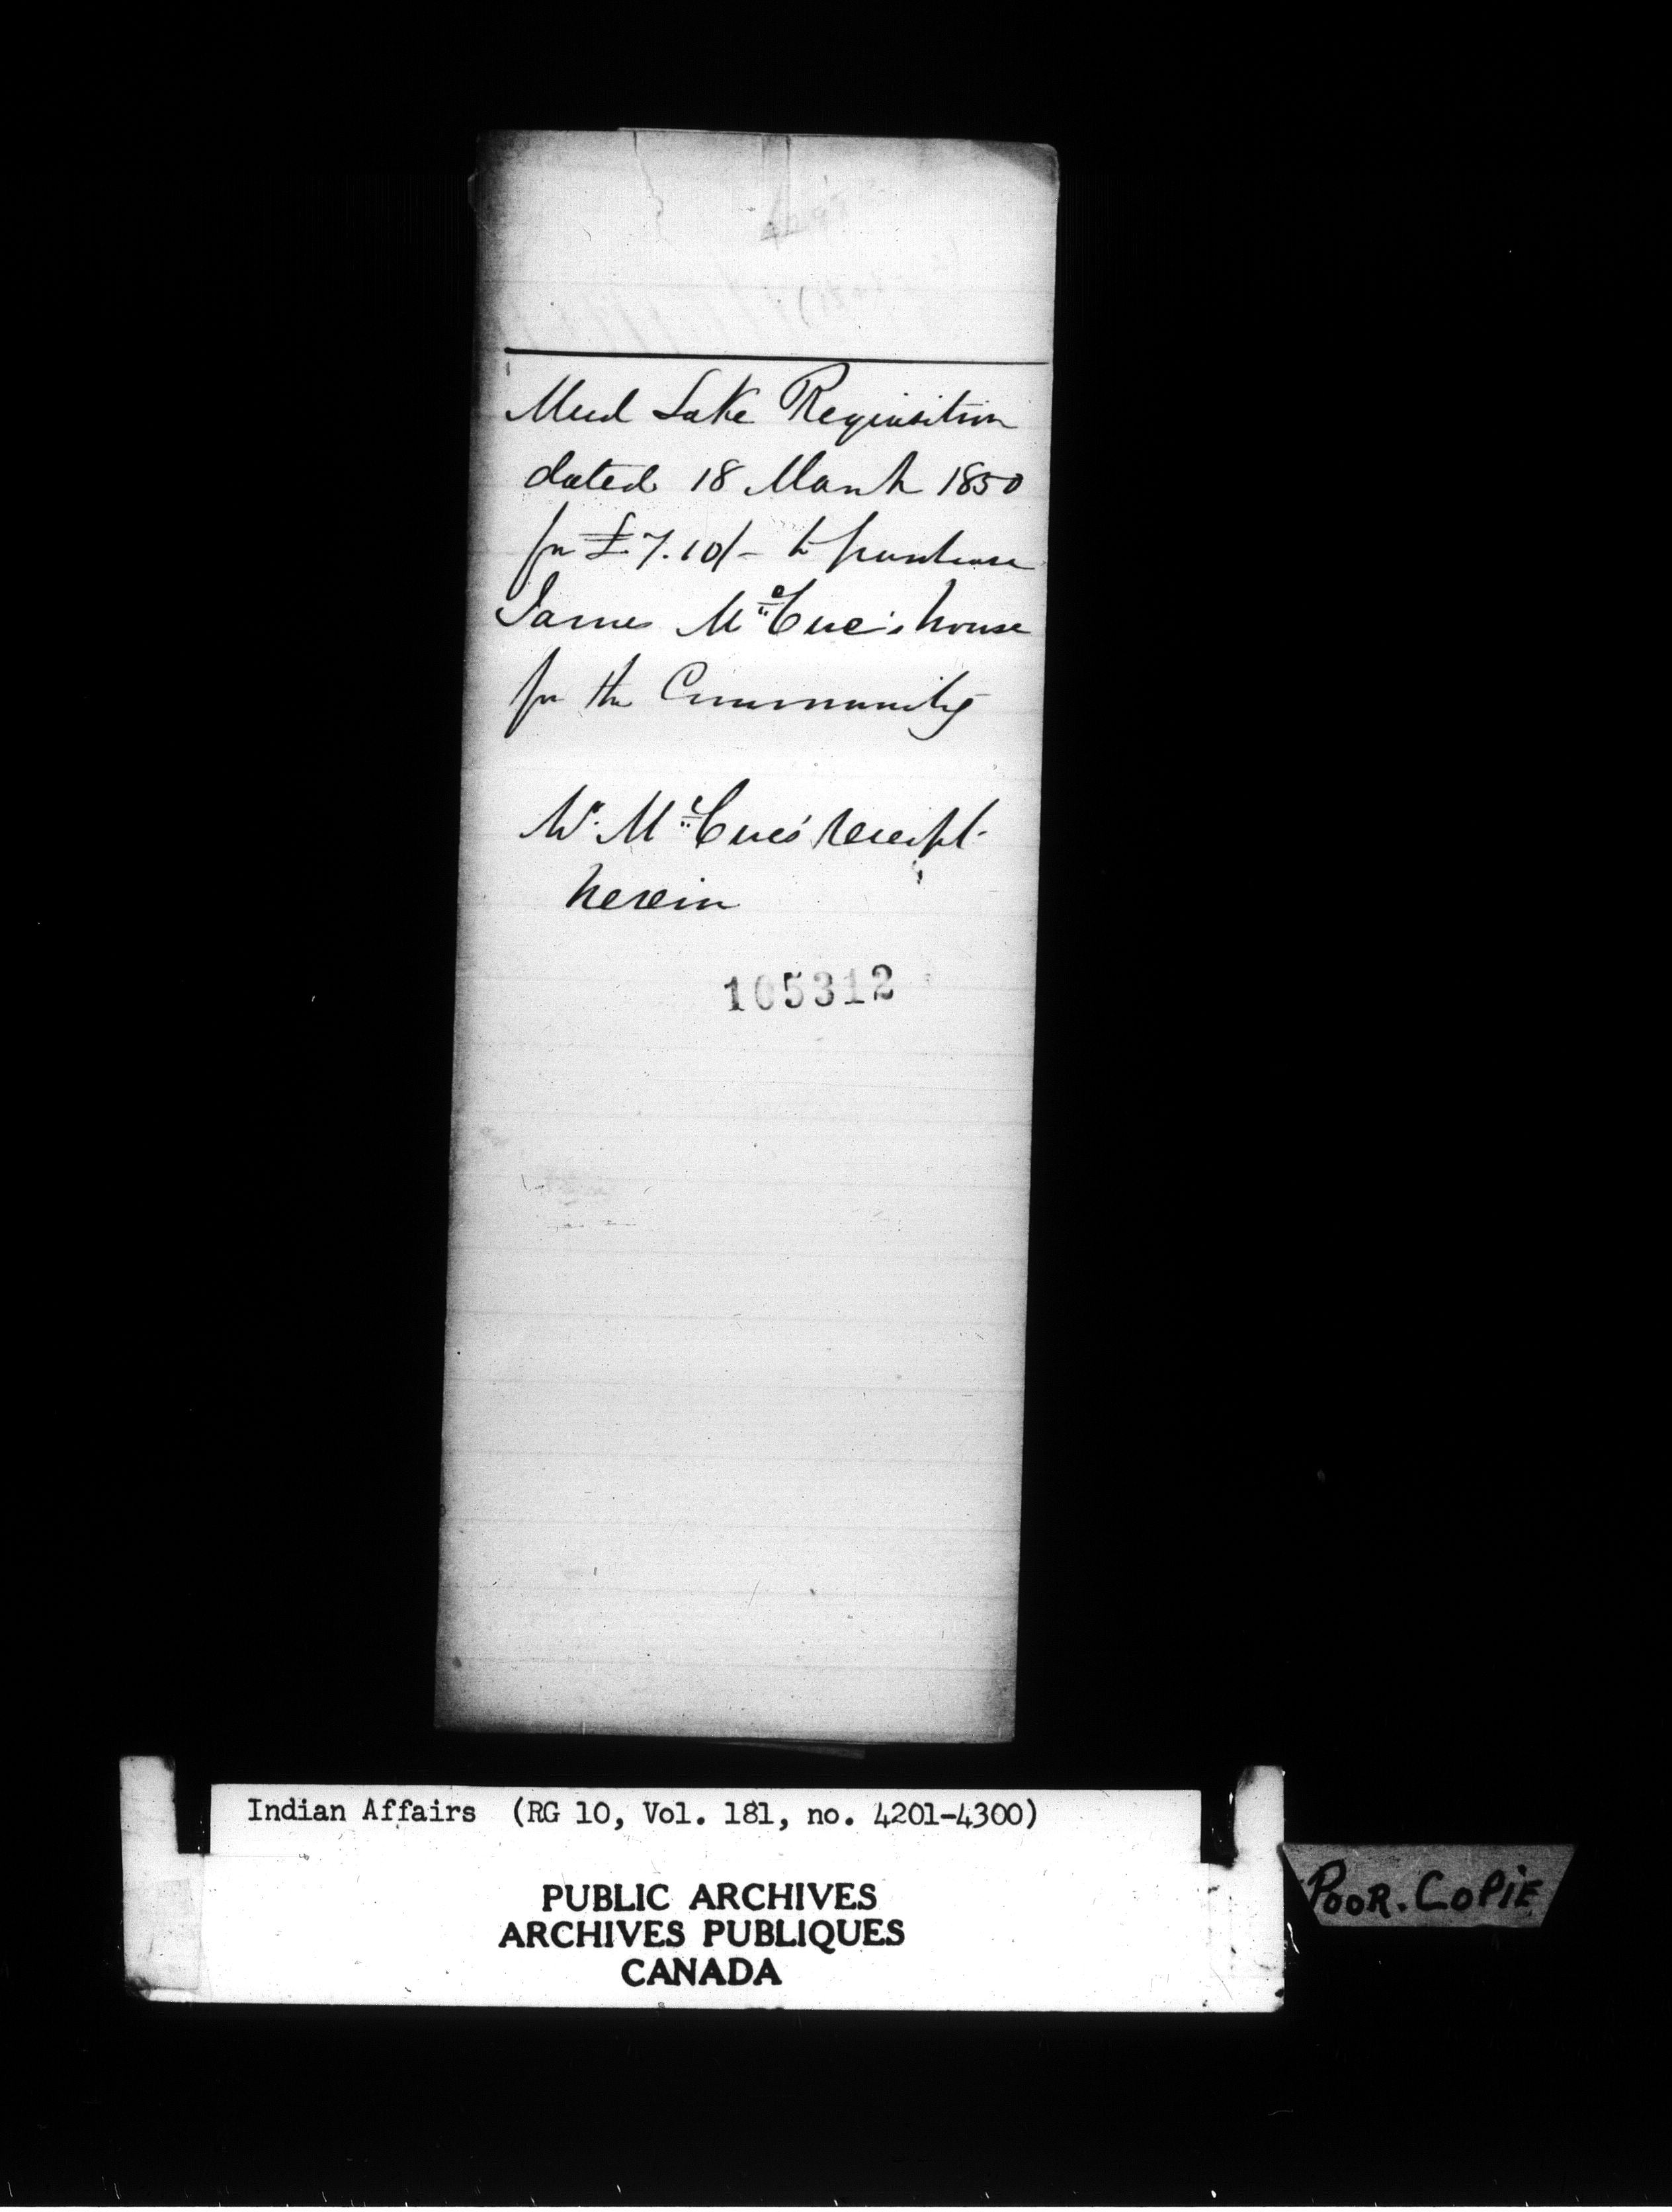 Mud Lake Requisition
dated 18 March 1850
for £7.10/- to purchase
James McCue's house
for the Community
Mr. McCue's receipt
herein
105312
Indian Affairs (RG 10, Vol. 181, no. 4201-4300)
PUBLIC ARCHIVES
ARCHIVES PUBLIQUES
CANADA
POOR. COPIE